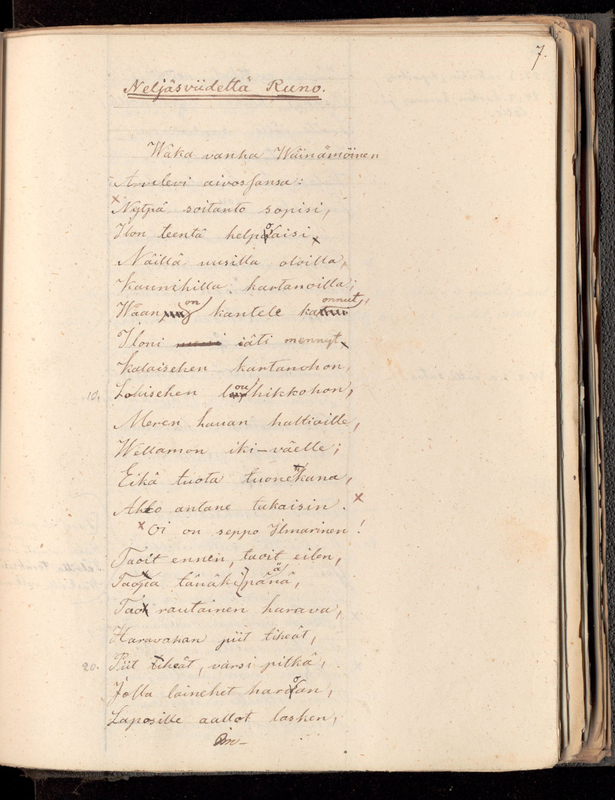 7.
Neljäsviidettä Runo.
Waka vanha Wäinämöinen
Arvelevi aivossansa:
Nytpä soitanto sopisi,
Ilon teentä helpoaisi
Näillä uusilla oloilla,
Kaunihilla kartanoilla;
Waan on kantele kaonnut,
Iloni iäti mennyt
Kalaisehen kartanohon,
10. Lohisehen louhikkohon,
Meren hauan haltioille,
Wellamon iki-väelle;
Eikä tuota tuonekana,
Ahto antane takaisin.
Oi on seppo Ilmarinen!
Taoit ennen, taoit eilen,
Taopa tänäki päänä,
Tao rautainen harava,
Haravahan piit tiheät,
20. Piit tiheät, varsi pitkä,
Jolla lainehet haroan,
Laposille aallot lasken,